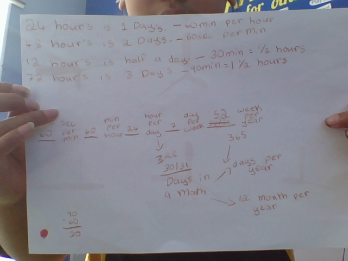 24 hour's is 1 Days. - 60min per hour
48 hour's is 2 Days. - 60sec per min
12 hour's is half a day - 30min = 1/2 hours
72 hour's is 3 Days - 90min = 1 1/2 hours
60 sec per min 60 min per hour 24 hour per day 7 day per week 52 week per year
365
30/31
Days in a Month
days per year
12 month per year